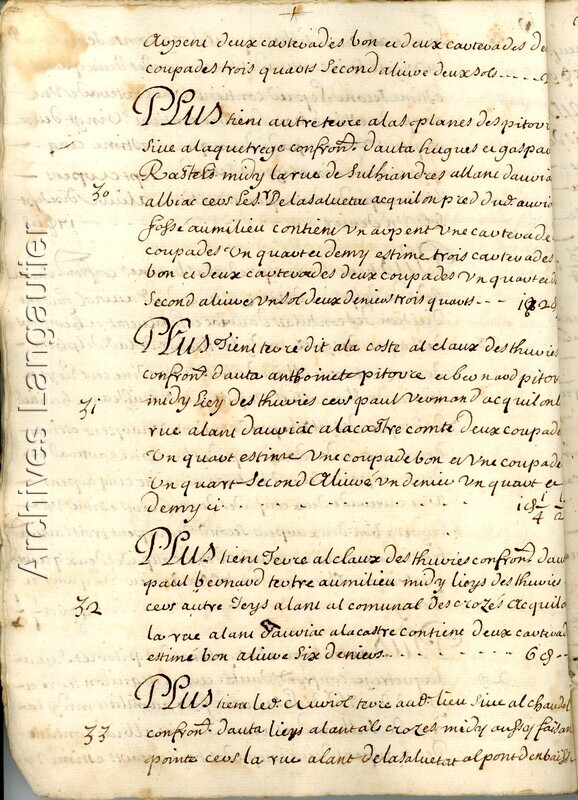 arpent deux cartevades bon et deux cartevades de
coupades trois quarts second alivre deux sols
PLus tient autre terre a las planes des pitorr
sive a la quetrege confron.t d'auta hugues et gaspar
Rastels midy la rue de Sulhiandres allant d'auvia
30
albiac cers Les
De la saluetat acquilon pred dud.
fossé au milieu contient un arpent une cartevade
coupades un quart et demy estime trois cartevades
bon et deux cartevades deux coupades un quart et d
second alivre un sol deux deniers trois quarts
PLus Tient terre dit a la coste al claux des thuvies
confron.t d'auta anthoinete pitorre et bernard pitor
31
midy lieys des thuvies cers paul d'acquilon l
rue alant d'auviac a lacastre comté deux coupade
un quart estime une coupade bon et une coupade
un quart second Alivré un denier un quart et
demy ci
PLus tient Terre al claux des thuvies confron.t d'au
paul bernard tertre au milieu midy lieys des thuvies
32
cers autre Jeys alant al comunal des crozés acquilo
la rue alant d'auviac a lacastre contient deux cartevad
estime bon alivre six deniers 6 d
PLus tient led. terre aud. lieu sive al
33
confron.t d'auta lieys alant als crozes midy aussy faisan
pointe cers la rue alant de la saluetat al pont d'enbaisse
Archives Langautier